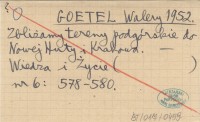 GOETEL Walery 1952.
Zbliżamy tereny podgórskie do
Nowej Huty i Krakowa. —
Wiedza i Życie (      )
nr 6: 578-580.